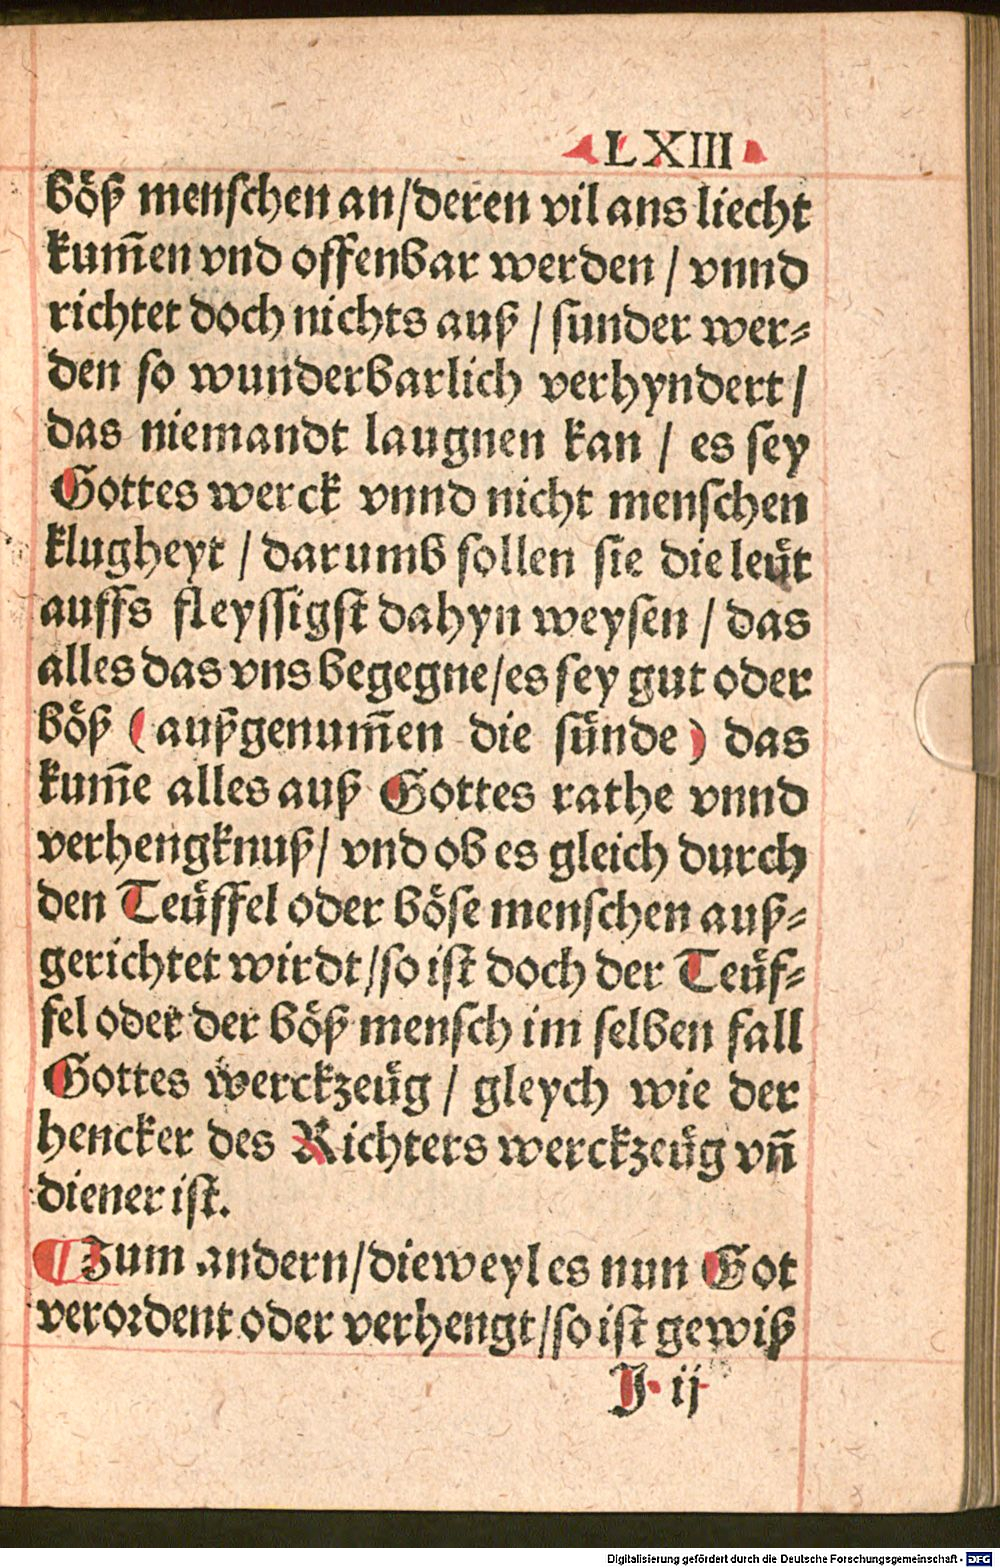 LXIII
böß menschen an/deren vil ans liecht
kum̄en vnd offenbar werden / vnnd
richtet doch nichts auß / sunder wer⸗
den so wunderbarlich verhyndert /
das niemandt laugnen kan / es sey
Gottes werck vnnd nicht menschen
klugheyt / darumb sollen sie die leüt
auffs fleyssigst dahyn weysen / das
alles das vns begegne/es sey gut oder
böß (außgenum̄en die sünde) das
kum̄e alles auß Gottes rathe vnnd
verhengknuß/ vnd ob es gleich durch
den Teüffel oder böse menschen auß⸗
gerichtet wirdt/so ist doch der Teüf⸗
fel oder der böß mensch im selben fall
Gottes werckzeüg / gleych wie der
hencker des Richters werckzeüg vñ
diener ist.
¶ Zum andern/dieweyl es nun Got
verordent oder verhengt/so ist gewiß
J ij
Digitalisierung gefördert durch die Deutsche Forschungsgemeinschaft - DFG